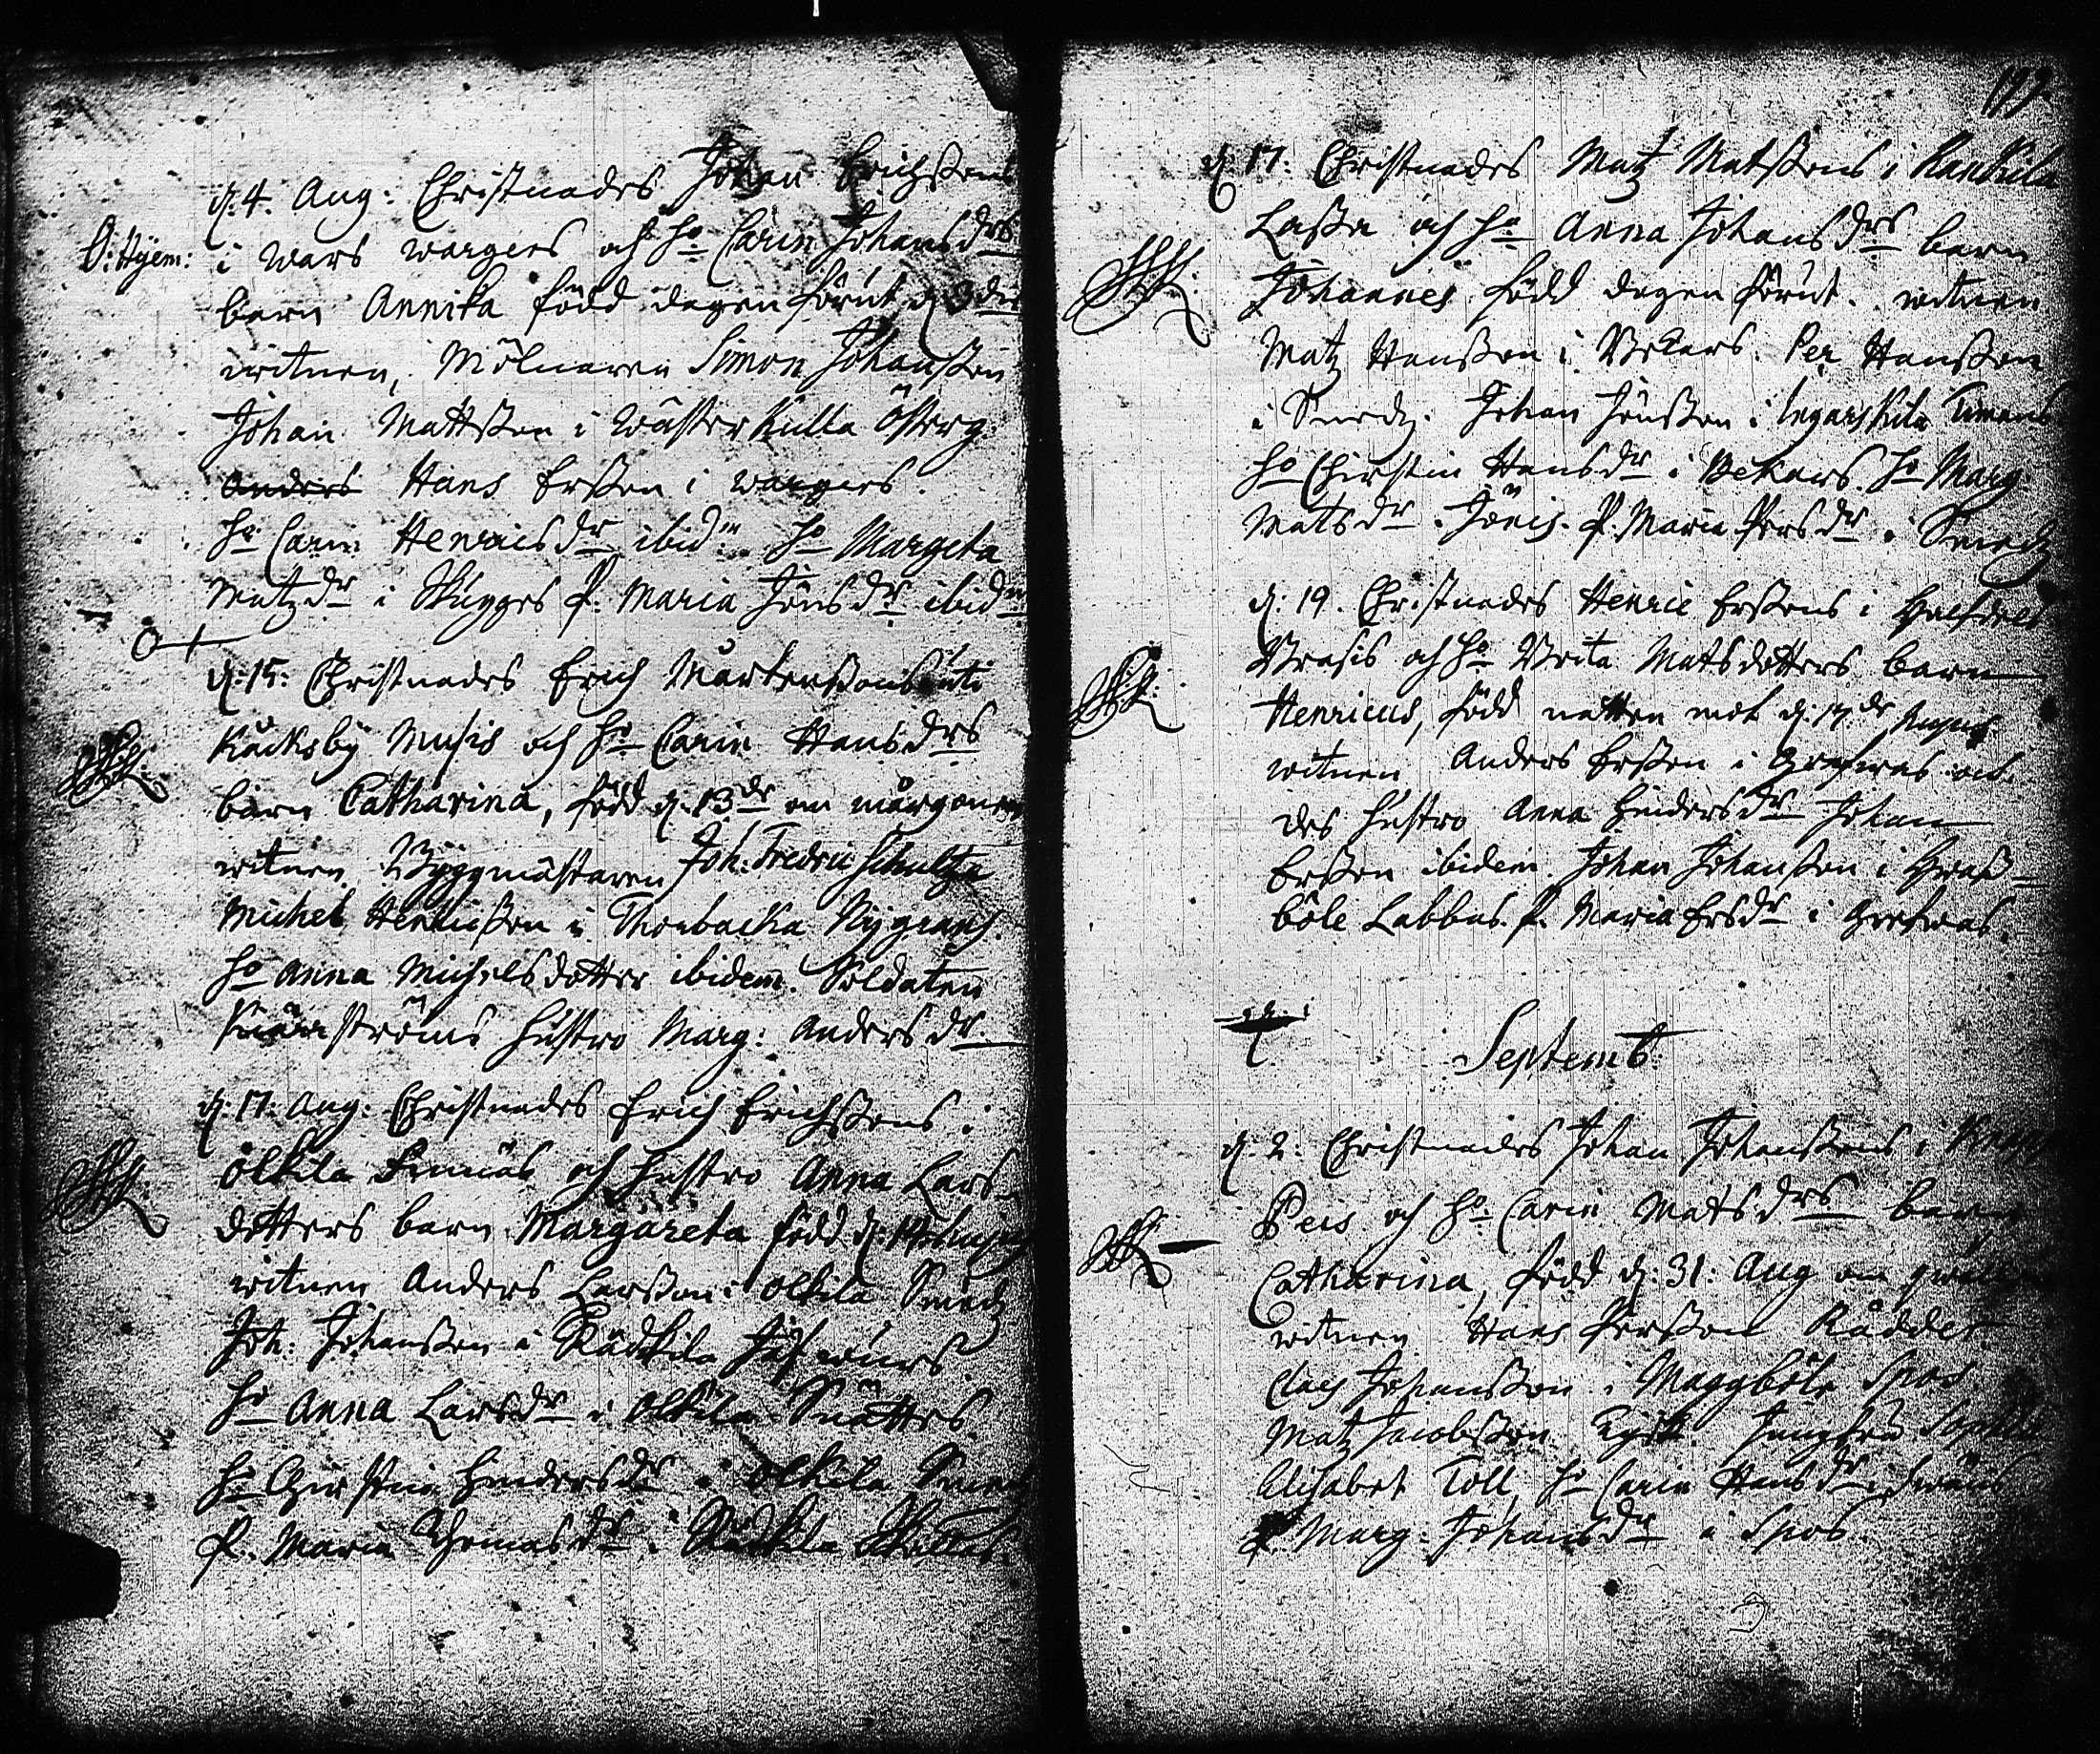 d. 4. Aug: Christnades Johan Erichssons
O: Hyem: i Wars wargers och ho Carin Johansdrs
barn Annika född dagen förut d 3die
witnen, Mölnaren Simon Johansson
Johan Mattsson i Wästerkulla Österg
Anders Hans Ersson i wargers.
ho Carin Henricsdr ibidm ho Margeta
Matzdr i Skugges P. Maria Jönsdr ibidm
d. 15: Christnades Erich Mårtenssons uti
Kåcksby Musis och ho Carin Hansdrs
barn Catharina, född d. 13de om morgonen
witnen Byggmästaren Joh: Fredric Schultz
Michel Henricsson i Thorbacka Nygrans.
ho Anna Michelsdotter ibidem. Soldaten
ströms hustro Marg: Andersdr
d. 17. Aug: Christnades Erich Erichssons i
Olkila och hustro Anna Lars
dotters barn Margareta född d.
witnen Anders Larsson i Olkila Smedz
Joh: Johansson i Rådkila
ho Anna Larsdr i Olkila Snåttes.
ho Chirstin Hindersdr i Olkila Smedz
P. Maria Thomasdr i Rådkila
199.
d. 17. Christnades Matz Matssons i Rankila
Lassa och ho Anna Johansdrs barn
Johannes, född dagen förut. witnen
Matz Hansson i Bekars. Per Hansson
i Smedz. Johan Jönsson i Ingarskila Timans
ho Chirstin Hansdr i Bekars. ho Marg
Matsdr. Jönis. P. Maria Persdr. i Smedz
d. 19. Christnades Henric Erssons i
Brasis och ho Brita Matsdotters barn
Henricus, född natten mot d. 17de
witnen Anders Ersson i Grefwas och
des hustro Anna Hindersdr Johan
Ersson ibidem. Johan Johansson i
böle Labbas. P. Maria Ersdr i Grefwas.
Septemb:
d. 2. Christnades Johan Johanssons i
Peis och ho Carin Matsdrs barn
Catharina, född d. 31. Aug om
witnen Hans Persson Rådder
Claes Johansson i Maggböle Spos
Matz Jacobsson Jungfru Sophia
Elisabet Toll, ho Carin Hansdr
P. Marg: Johansdr i Spos.